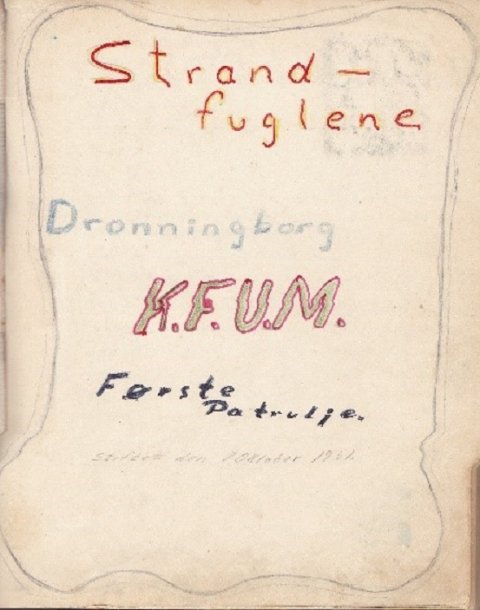 Strand-
fuglene
Dronningborg
K.F.U.M.
Første
Patrulje.
den Oktober